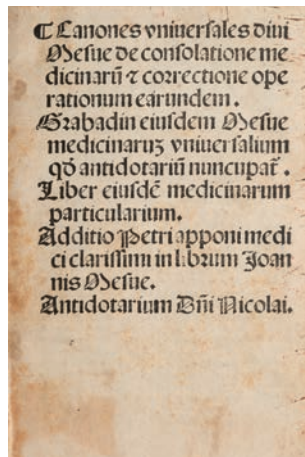 ¶ Canones vniuersales diui
Mesue de consolatione me
dicinarū ⁊ correctione ope
rationum earundem.
Grabadin eiusdem Mesue
medicinaruꝫ vniuersalium
qđ antidotariū nuncupat̄.
Liber eiusdē medicinarum
particularium.
Additio Petri apponi medi
ci clarissimi in librum Joan
nis Mesue.
Antidotarium Dñi Nicolai.